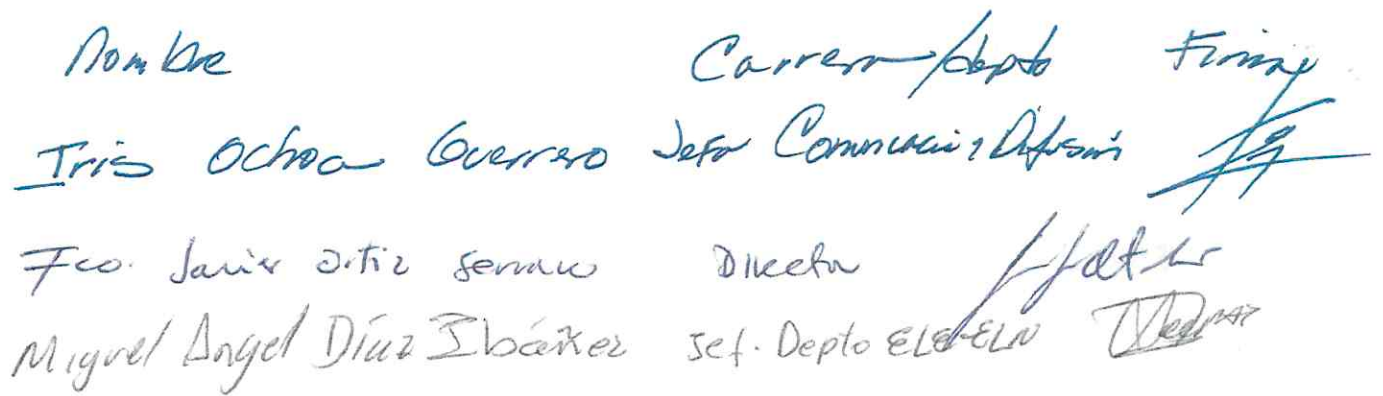 Nombre Carrera/depto Firma
Iris Ochoa Guerrero Jefa Comunicación y Difusión
Fco. Javier Ortiz Serrano Director
Miguel Angel Díaz Ibáñez Jef. Depto ELE-ELN